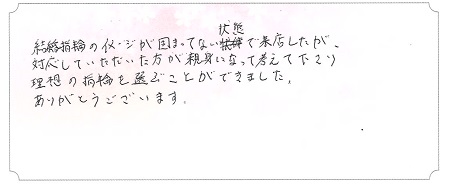 結婚指輪のイメージが固まってない状態で来店したが、
対応していただいた方が親身になって考えて下さり
理想の指輪を選ぶことができました。
ありがとうございます。